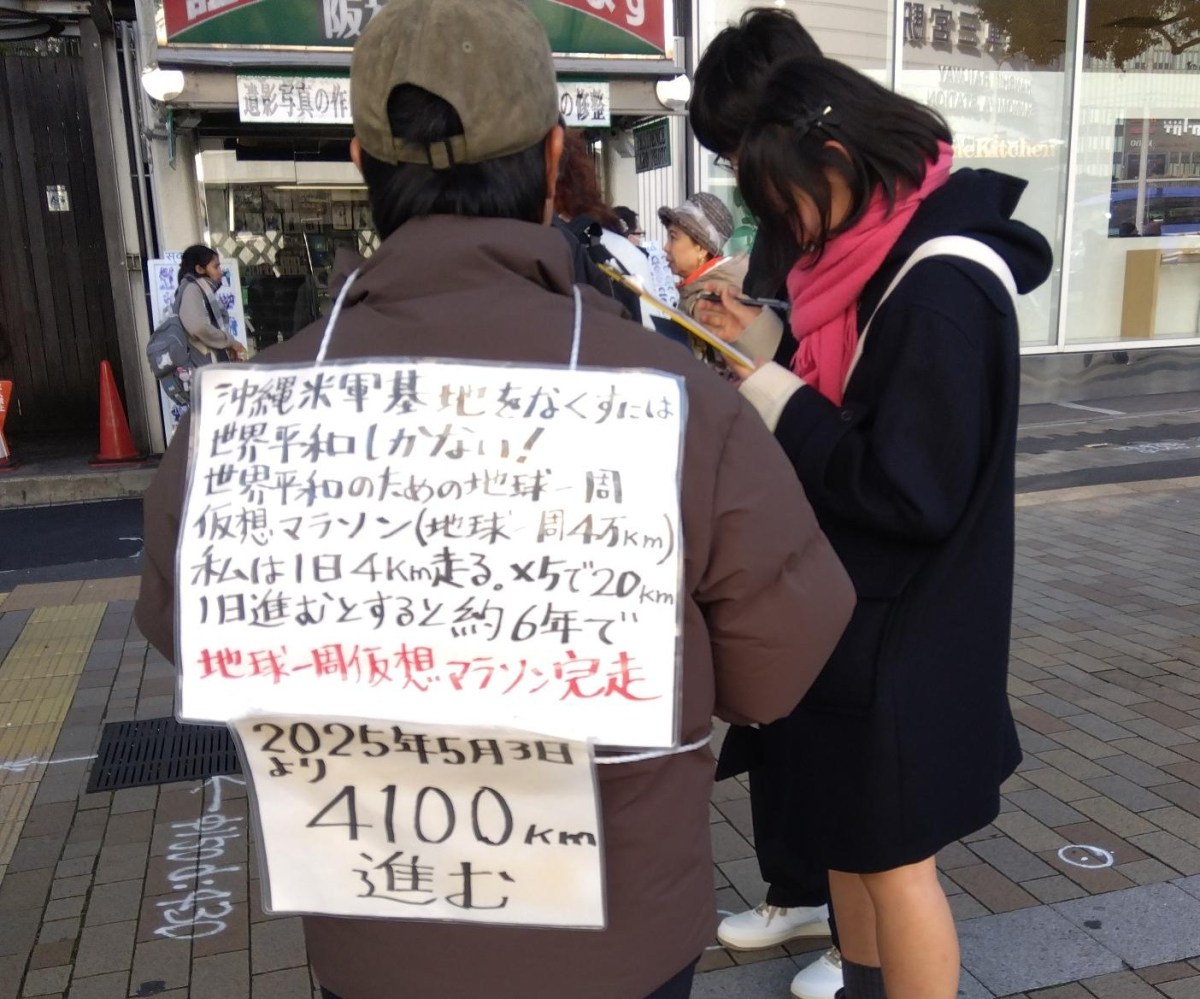 阪
す
遺影写真の作
の修整
沖縄米軍基地をなくすには
世界平和しかない!
世界平和のための地球一周
仮想マラソン(地球一周4万km)
私は1日4Km走る。×5で20km
1日進むとすると約6年で
地球一周仮想マラソン完走
2025年5月3日
より
4100km
進む